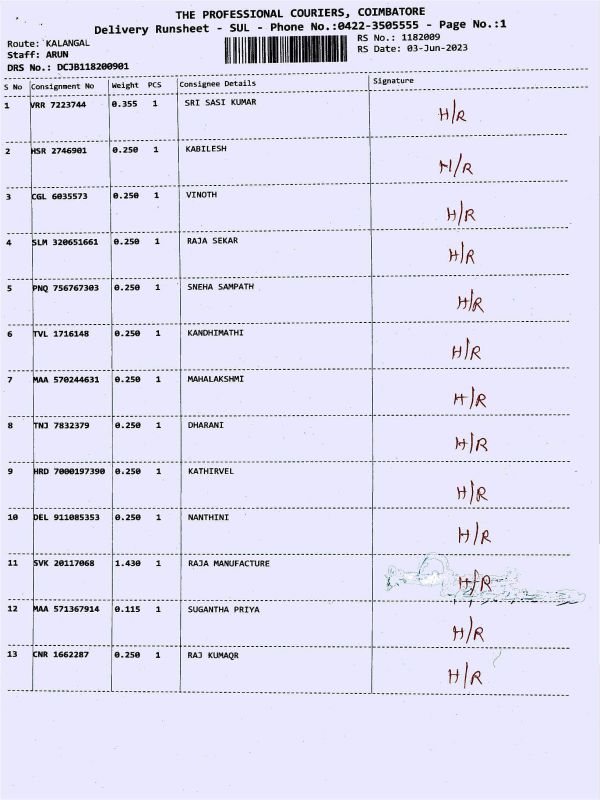 THE PROFESSIONAL COURIERS, COIMBATORE
Delivery Runsheet - SUL - Phone No.:0422-3505555 - Page No.:1
Route: KALANGAL RS No.: 1182009
Staff: ARUN RS Date: 03-Jun-2023
DRS No.: DCJB118200901
S No Consignment No Weight PCS Consignee Details Signature
1 VRR 7223744 0.355 1 SRI SASI KUMAR H/R
2 HSR 2746901 0.250 1 KABILESH H/R
3 CGL 6035573 0.250 1 VINOTH H/R
4 SLM 320651661 0.250 1 RAJA SEKAR H/R
5 PNQ 756767303 0.250 1 SNEHA SAMPATH H/R
6 TVL 1716148 0.250 1 KANDHIMATHI H/R
7 MAA 570244631 0.250 1 MAHALAKSHMI H/R
8 TNJ 7832379 0.250 1 DHARANI H/R
9 HRD 7000197390 0.250 1 KATHIRVEL H/R
10 DEL 911085353 0.250 1 NANTHINI H/R
11 SVK 20117068 1.430 1 RAJA MANUFACTURE H/R
12 MAA 571367914 0.115 1 SUGANTHA PRIYA H/R
13 CNR 1662287 0.250 1 RAJ KUMAQR H/R